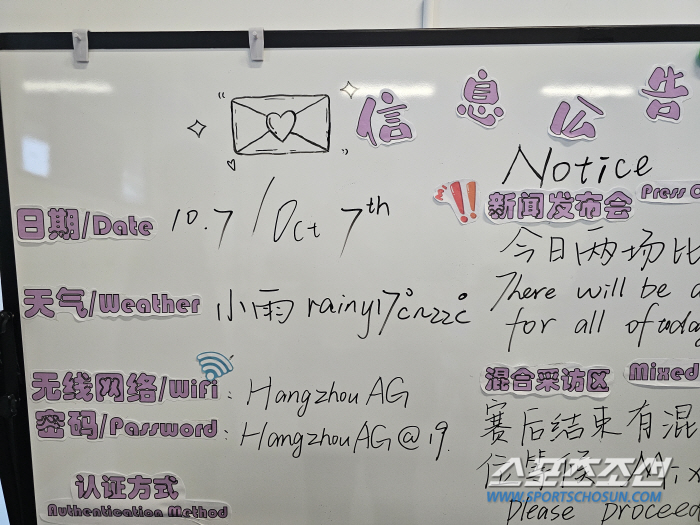 信息公告
Notice
日期/Date 10.7/Oct 7th
天气/Weather 小雨 rainy 17℃~22℃
无线网络/WiFi: HangzhouAG
密码/Password: HangzhouAG@19.
认证方式
Authentication Method
新闻发布会 Press
今日两场比
There will be
for all of today
混合采访区 Mixed
赛后结束有混
스포츠조선
WWW.SPORTSCHOSUN.COM
Please proceed